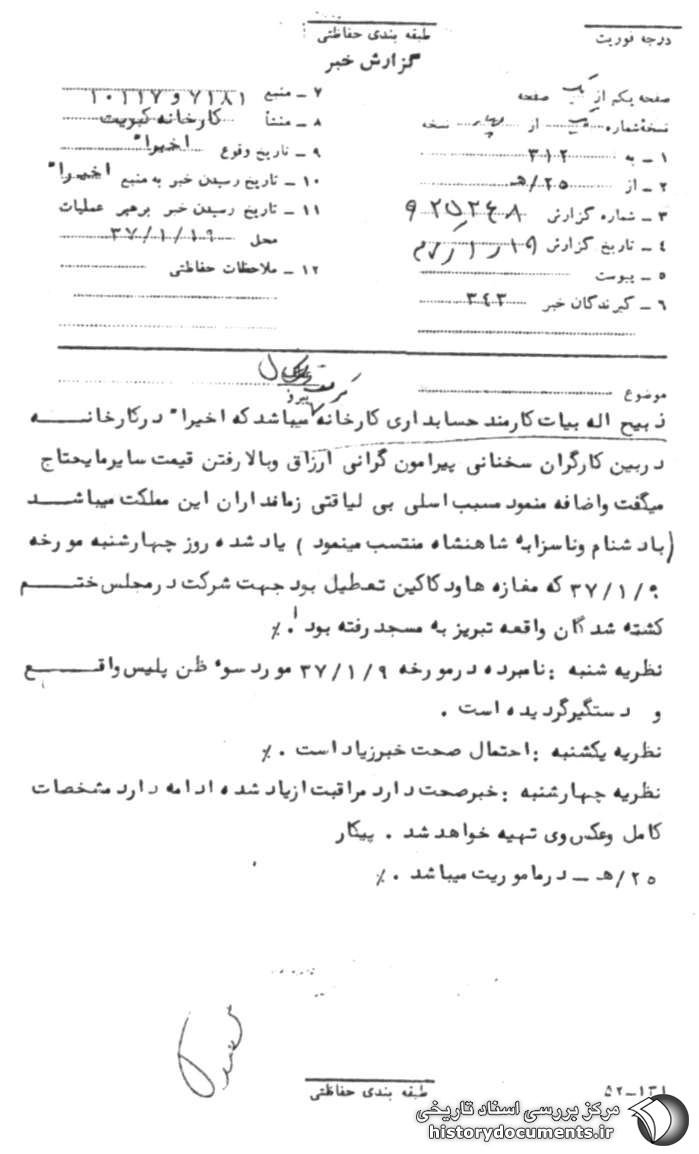 درجه فوریت
طبقه بندی حفاظتی
گزارش خبر
صفحه یکم از یک صفحه
نسخه شماره از چهار نسخه
۱ ـ به ۳۱۲
۲ ـ از ۲۵/هـ
۳ ـ شماره گزارش
۴ ـ تاریخ گزارش
۵ ـ پیوست
۶ ـ گیرندگان خبر ۳۴۳
۷ ـ منبع ۷۱۸۱ و ۱۰۱۱۷
۸ ـ منشأ کارخانه کبریت
۹ ـ تاریخ وقوع اخیراً
۱۰ ـ تاریخ رسیدن خبر به منبع اخیراً
۱۱ ـ تاریخ رسیدن خبر برهبر عملیات
محل ۳۷/۱/۱۹
۱۲ ـ ملاحظات حفاظتی
موضوع
ذبیح اله بیات کارمند حسابداری کارخانه میباشد که اخیراً درکارخانه
دربین کارگران سخنانی پیرامون گرانی ارزاق وبالا رفتن قیمت سایرمایحتاج
میگفت واضافه منمود مسبب اسلی بی لیاقتی زمامداران این مملکت میباشد
(بادشنام وناسزابه شاهنشاه منتسب مینمود ) یادشده روز چهارشنبه مورخه
۳۷/۱/۹ که مغازه هاودکاکین تعطیل بود جهت شرکت درمجلس ختم
کشته شدگان واقعه تبریز به مسجد رفته بود ./
نظریه شنبه : نامبرده درمورخه ۳۷/۱/۹ مورد سوء ظن پلیس واقع
و دستگیرگردیده است .
نظریه یکشنبه : احتمال صحت خبرزیاد است ./
نظریه چهارشنبه : خبرصحت دارد مراقبت ازیاد شده ادامه دارد مشخصات
کامل وعکس وی تهیه خواهد شد . پیکار
۲۵/هـ ـ درماموریت میباشد ./
طبقه بندی حفاظتی
۵۲-۱۳۱
مرکز بررسی اسناد تاریخی
historydocuments.ir